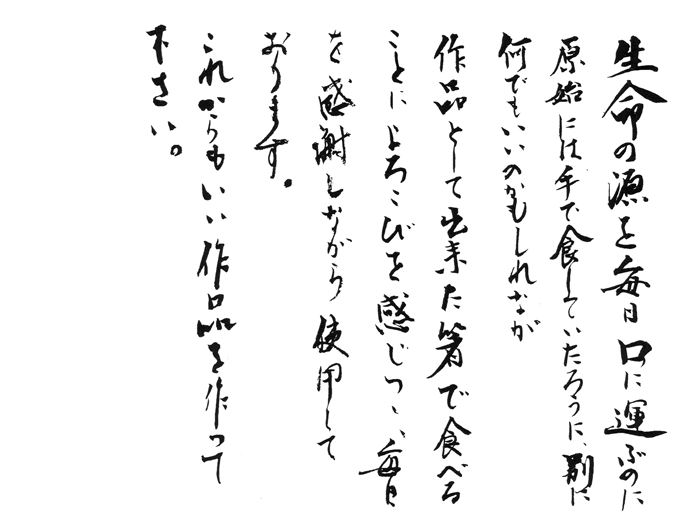 生命の源を毎日口に運ぶのに
原始には手で食していたろうに、別に
何でもいいのかもしれなが
作品として出来た箸で食べる
ことによろこびを感じつゝ、毎日
を感謝しながら使用して
おります。
これからもいい作品を作って
下さい。